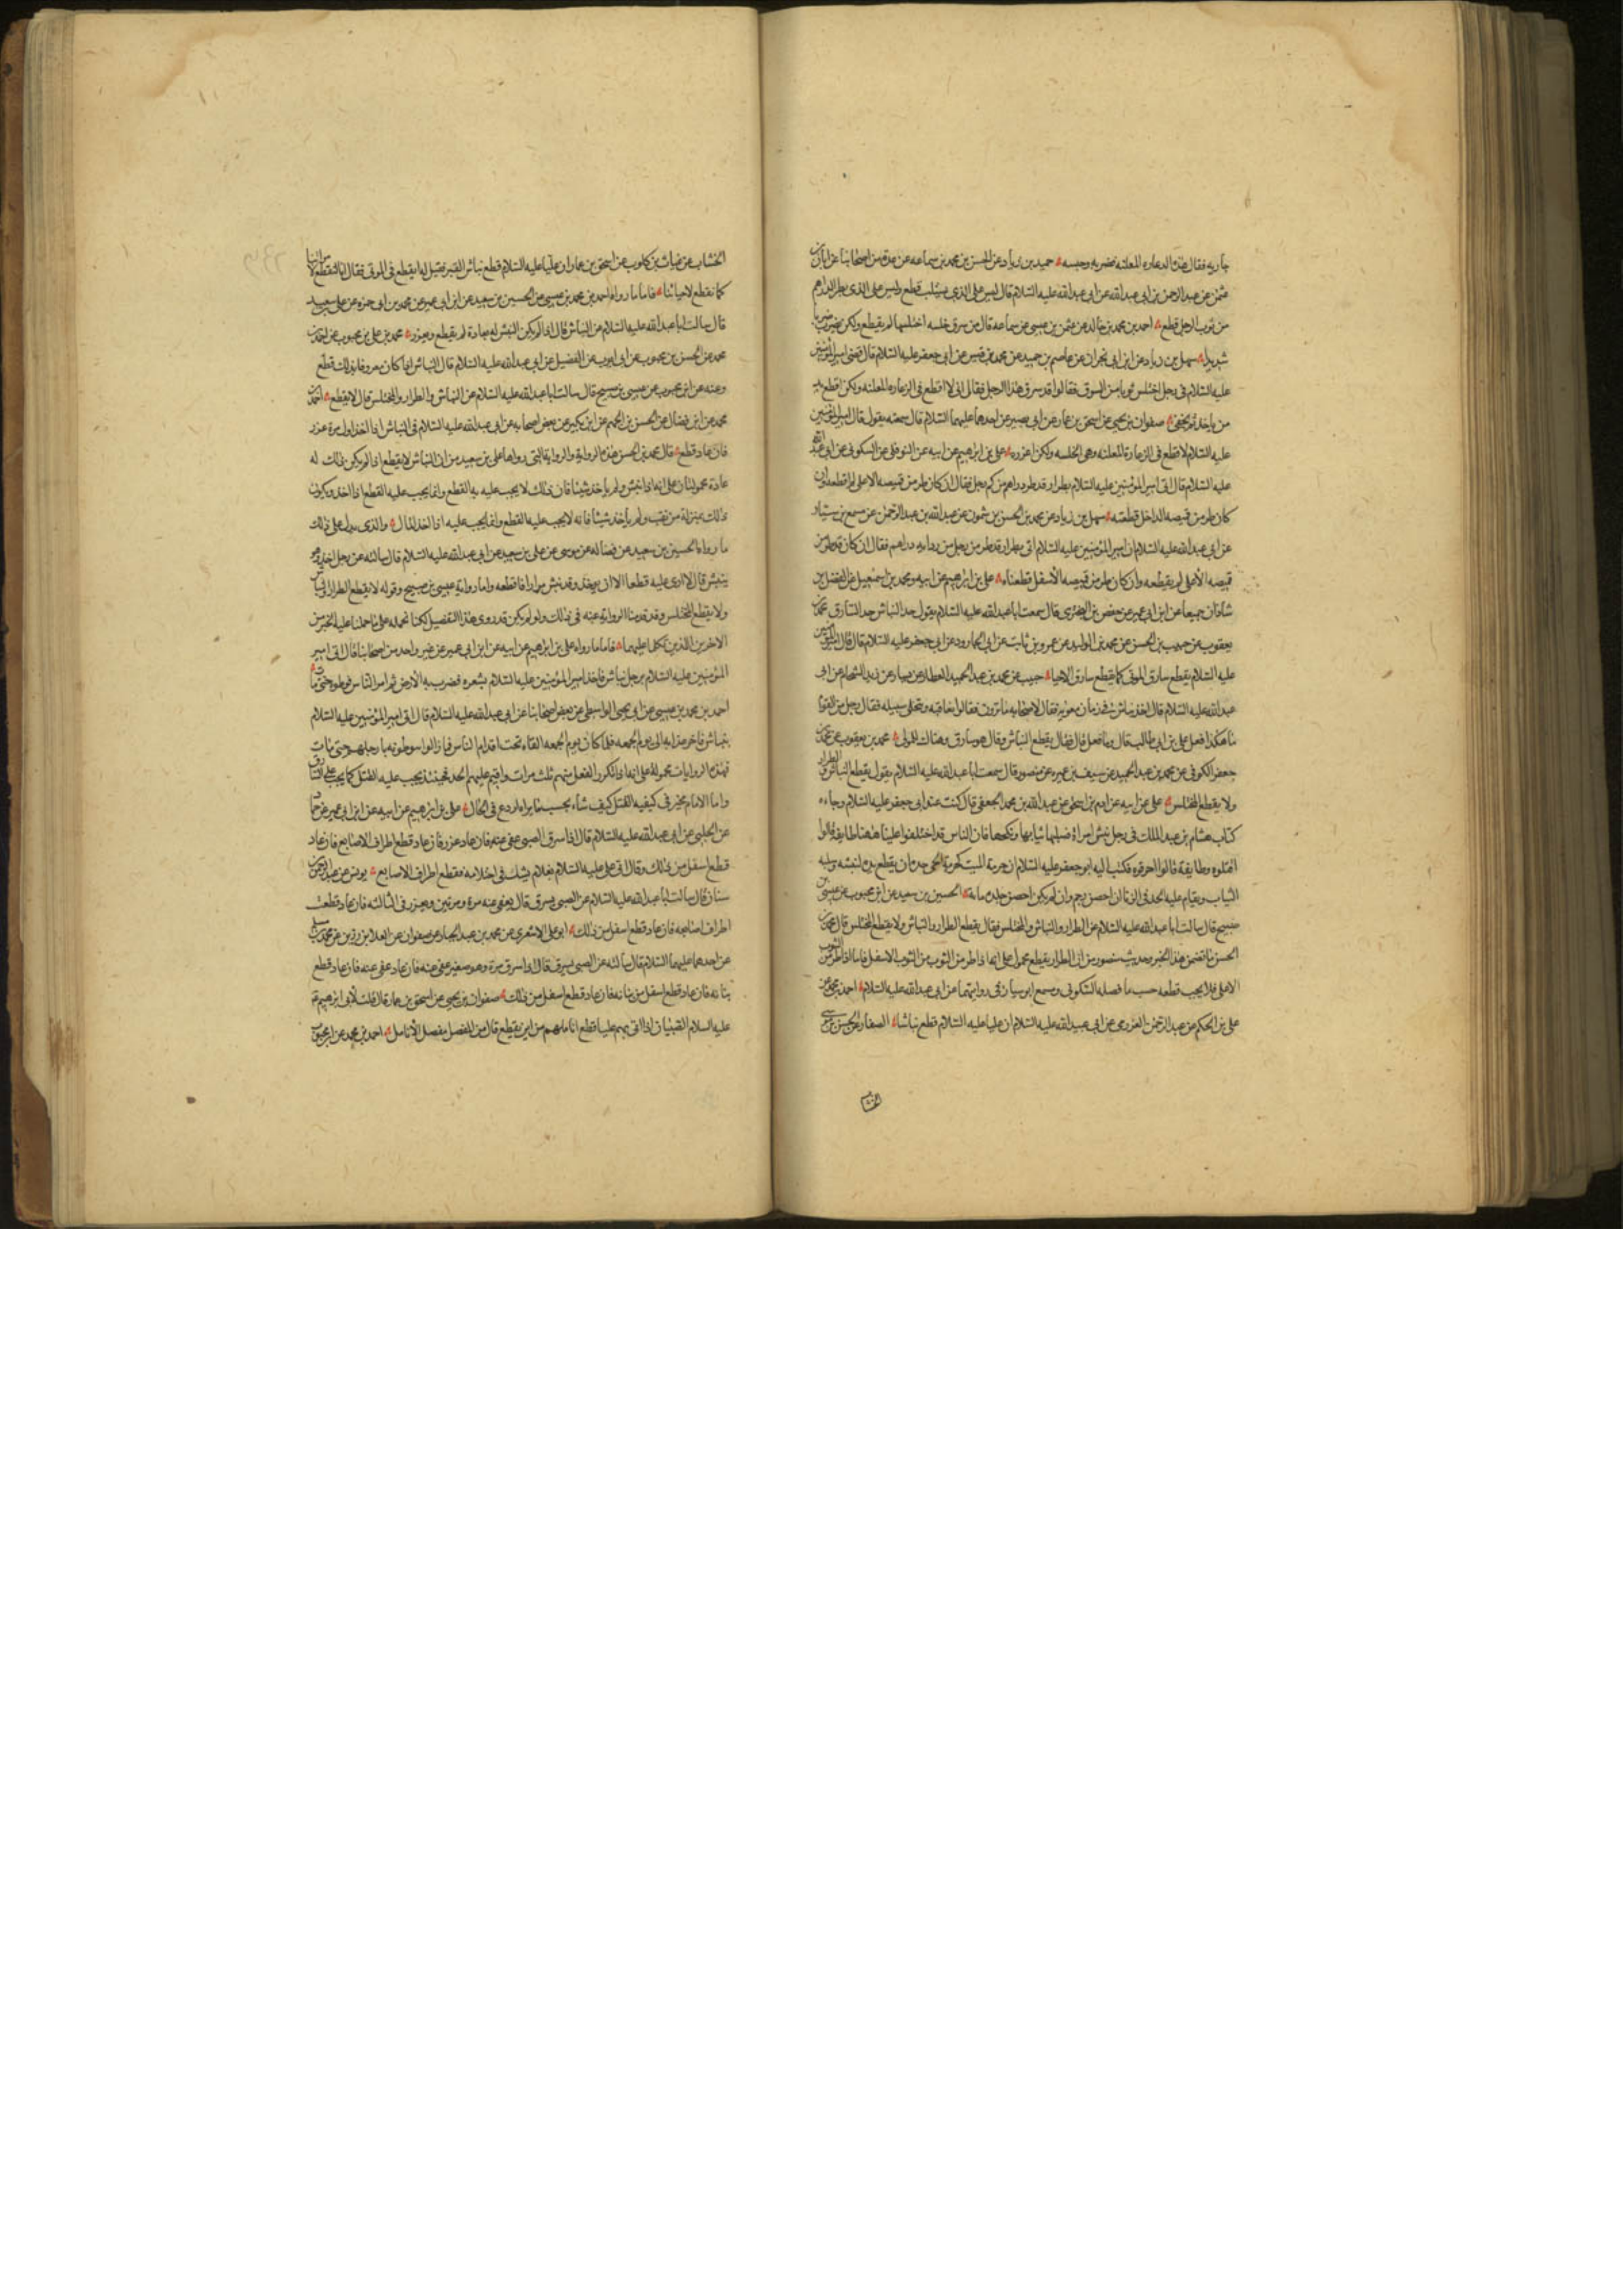 جاريه فقال هذه الدعاره المعلنه فضربه وحبسه حميد بن زياد عن الحسن بن محمد بن سماعه عن عدة من اصحابنا عن ابان بن
عثمن عن عبد الرحمن بن ابى عبد الله عن ابى عبد الله عليه السلام قال ليس على الذى يستلب قطع وليس على الذى يطر الدراهم
من ثوب الرجل قطع احمد بن محمد بن خالد عن عثمن بن عيسى عن سماعه قال من سرق خلسه اختلسها لم يقطع ولكن يضرب ضربا
شديدا سهل بن زياد عن ابن ابى نجران عن عاصم بن حميد عن محمد بن قيس عن ابى جعفر عليه السلام قال قضى امير المؤمنين
عليه السلام فى رجل اختلس ثوبا من السوق فقالوا قد سرق هذا الرجل فقال انى لا اقطع فى الدعاره المعلنه ولكن اقطع يد
من ياخذ ثم يخفى صفوان بن يحيى عن اسحق بن عمار عن ابى بصير عن احدهما عليهما السلام قال سمعته يقول قال امير المؤمنين
عليه السلام لا اقطع فى الدعارة المعلنه وهى الخلسه ولكن اعزره على بن ابرهيم عن ابيه عن النوفلى عن السكونى عن ابى عبد الله
عليه السلام قال اتى امير المؤمنين عليه السلام بطرار قد طر دراهم من كم رجل فقال ان كان طر من قميصه الاعلى لم اقطعه وان
كان طر من قميصه الداخل قطعته سهل بن زياد عن محمد بن الحسن بن شمون عن عبد الله بن عبد الرحمن عن مسمع بن سيار
عن ابى عبد الله عليه السلام ان امير المؤمنين عليه السلام اتى بطرار قد طر من رجل من ردائه دراهم فقال ان كان قد طر من
قميصه الأعلى لم يقطعه وان كان طر من قميصه الأسفل قطعناه على بن ابرهيم عن ابيه ومحمد بن اسمعيل عن الفضل بن
شاذان جميعا عن ابن ابى عمير عن حفص بن البخترى قال سمعت ابا عبد الله عليه السلام يقول حد النباش حد السارق محمد بن
يعقوب عن حبيب بن الحسن عن محمد بن الوليد عن عمرو بن ثابت عن ابى الجارود عن ابى جعفر عليه السلام قال قال امير المؤمنين
عليه السلام يقطع سارق الموتى كما يقطع سارق الاحيا حبيب عن محمد بن عبد الحميد العطار عن سيار عن زيد الشحام عن ابى
عبد الله عليه السلام قال اخذ نباش فى زمان معويه فقال لاصحابه ما ترون فقالوا نعاقبه وتخلى سبيله فقال رجل من القوم
ما هكذا فعل على بن ابى طالب قال وما فعل قال فقال يقطع النباش وقال هو سارق وهتاك للموتى محمد بن يعقوب عن محمد بن
جعفر الكوفى عن محمد بن عبد الحميد عن سيف بن عميره عن منصور قال سمعت ابا عبد الله عليه السلام يقول يقطع النباش والطرار
ولا يقطع المختلس على عن ابيه عن ادم بن اسحق عن عبد الله بن محمد الجعفى قال كنت عند ابى جعفر عليه السلام وجاءه
كتاب هشام بن عبد الملك فى رجل نبش امراة فسلبها ثيابها ونكحها فان الناس قد اختلفوا علينا ههنا طايفة قالوا
اقتلوه وطايفة قالوا احرقوه فكتب اليه ابو جعفر عليه السلام ان حرمة الميت كحرمة الحى حده ان يقطع يده لنبشه وسلبه
الثياب ويقام عليه الحد فى الزنا ان احصن رجم وان لم يكن احصن جلد مائة الحسين بن سعيد عن ابن محبوب عن عيسى بن
صبيح قال سالت ابا عبد الله عليه السلام عن الطرار والنباش والمختلس فقال يقطع الطرار والنباش ولا يقطع المختلس قال محمد بن
الحسن ما تضمن هذا الخبر وحديث منصور من ان الطرار يقطع محمول على انه اذا طر من الثوب من الثوب الاسفل فاما اذا طر من الثوب
الاعلى فلا يجب قطعه حسب ما فصله السكونى ومسمع ابو سيار فى روايتهما عن ابى عبد الله عليه السلام احمد بن محمد عن
على بن الحكم عن عبد الرحمن العزرمى عن ابى عبد الله عليه السلام ان عليا عليه السلام قطع نباشا الصفار عن الحسن بن موسى
الخشاب
الخشاب عن غياث بن كلوب عن اسحق بن عمار ان عليا عليه السلام قطع نباش القبر فقيل له ايقطع فى الموتى فقال انا لنقطع لامواتنا
كما نقطع لاحيائنا فاما ما رواه احمد بن محمد بن عيسى عن الحسين بن سعيد عن ابن ابى عمير عن محمد بن ابى حمزه عن على بن سعيد
قال سالت ابا عبد الله عليه السلام عن النباش قال اذا لم يكن النبش له بعادة لم يقطع ويعزر محمد بن على بن محبوب عن احمد بن
محمد عن الحسن بن محبوب عن ابى ايوب عن الفضيل عن ابى عبد الله عليه السلام قال النباش اذا كان معروفا بذلك قطع
وعنه عن ابن محبوب عن عيسى بن صبيح قال سالت ابا عبد الله عليه السلام عن النباش والطرار والمختلس قال لا يقطع احمد بن
محمد عن ابن فضال عن الحسن بن الجهم عن ابن بكير عن بعض اصحابه عن ابى عبد الله عليه السلام فى النباش اذا اخذ اول مرة عزر
فان عاد قطع قال محمد بن الحسن هذه الرواية والرواية التى رواها على بن سعيد من ان النباش لا يقطع اذا لم يكن ذلك له
عادة محمولتان على انه اذا نبش ولم ياخذ شيئا فان ذلك لا يجب عليه به القطع وانما يجب عليه القطع اذا اخذ ويكون
ذلك بمنزلة من نقب ولم يأخذ شيئا فانه لا يجب عليه القطع وانما يجب عليه اذا اخذ المال والذى يدل على ذلك
ما رواه الحسين بن سعيد عن فضاله عن موسى عن على بن سعيد عن ابى عبد الله عليه السلام قال سالته عن رجل اخذ وهو
ينبش قال لا ارى عليه قطعا الا ان يؤخذ وقد نبش مرارا فاقطعه واما رواية عيسى بن صبيح وقوله لا يقطع الطرار والنباش
ولا يقطع المختلس وقد قدمنا الرواية عنه فى ذلك ولو لم يكن قد روى هذا التفصيل لكنا نحمله على ما حملنا عليه الخبر من
الاخرين الذين تكلمنا عليهما فاما ما رواه على بن ابرهيم عن ابيه عن ابن ابى عمير عن غير واحد من اصحابنا قال اتى امير
المؤمنين عليه السلام برجل نباش فاخذ امير المؤمنين عليه السلام بشعره فضرب به الأرض ثم امر الناس فوطوه حتى مات
احمد بن محمد بن عيسى عن ابى يحيى الواسطى عن بعض اصحابنا عن ابى عبد الله عليه السلام قال اتى امير المؤمنين عليه السلام
بنباش فاخر عذابه الى يوم الجمعه فلما كان يوم الجمعه القاه تحت اقدام الناس فما زالوا يوطونه بارجلهم حتى مات
فهذه الروايات محمولة على انه اذا تكرر الفعل منهم ثلث مرات واقيم عليهم الحد فحينئذ يجب عليه القتل كما يجب على السارق
واما الامام مخير فى كيفيه القتل كيف شاء بحسب ما يراه اردع فى الحال على بن ابرهيم عن ابيه عن ابن ابى عمير عن حماد
عن الحلبى عن ابى عبد الله عليه السلام قال اذا سرق الصبى عفى عنه فان عاد عزر فان عاد قطع اطراف الاصابع فان عاد
قطع اسفل من ذلك وقال اتى على عليه السلام بغلام يشك فى احتلامه فقطع اطراف الاصابع يونس عن عبد الله بن
سنان قال سالت ابا عبد الله عليه السلام عن الصبى يسرق قال يعفى عنه مرة ومرتين ويعزر فى الثالثه فان عاد قطعت
اطراف اصابعه فان عاد قطع اسفل من ذلك ابو على الاشعرى عن محمد بن عبد الجبار عن صفوان عن العلا بن رزين عن محمد بن مسلم
عن احدهما عليهما السلام قال سالته عن الصبى يسرق قال اذا سرق مرة وهو صغير عفى عنه فان عاد عفى عنه فان عاد قطع
بنانه فان عاد قطع اسفل من بنانه فان عاد قطع اسفل من ذلك صفوان بن يحيى عن اسحق بن عمار قال قلت لأبى ابرهيم
عليه السلام الصبيان اذا اتى بهم عليا قطع اناملهم من اين يقطع قال من المفصل مفصل الأنامل احمد بن محمد عن ابن محبوب